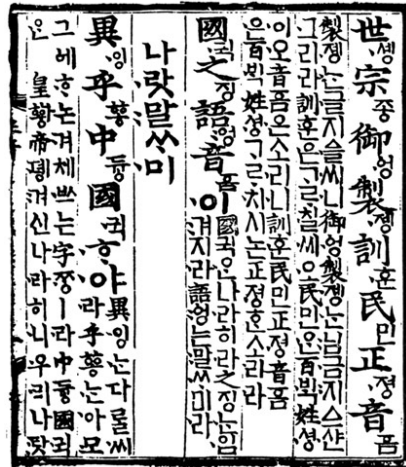 世솅宗종御ᅌᅥᆼ製졩訓훈民민正졍音ᅙᅳᆷ
製졩ᄂᆞᆫ글지ᅀᅳᆯ씨니御ᅌᅥᆼ製졩ᄂᆞᆫ님금지ᅀᅳ샨
그리라訓훈ᄋᆞᆫᄀᆞᄅᆞ칠씨오民민ᄋᆞᆫ百ᄇᆡᆨ姓셩
이오音ᅙᅳᆷ은소리니訓훈民민正졍音ᅙᅳᆷ
은百ᄇᆡᆨ姓셩ᄀᆞᄅᆞ치시논正졍ᄒᆞᆫ소리라
國귁之징語ᅌᅥᆼ音ᅙᅳᆷ이
國귁ᄋᆞᆫ나라히라之징ᄂᆞᆫ입
겨지라語ᅌᅥᆼ는말ᄊᆞ미라
나랏말ᄊᆞ미
異잉乎ᅘᅩᆼ中듕國귁ᄒᆞ야
異잉ᄂᆞᆫ다ᄅᆞᆯ씨
라乎ᅘᅩᆼᄂᆞᆫ아모
그ᅌᅦᄒᆞ논겨체ᄡᅳ는字ᄍᆞᆼㅣ라中듕國귁
ᄋᆞᆫ皇ᅘᅪᆼ帝뎽겨신나라히니우리나랏